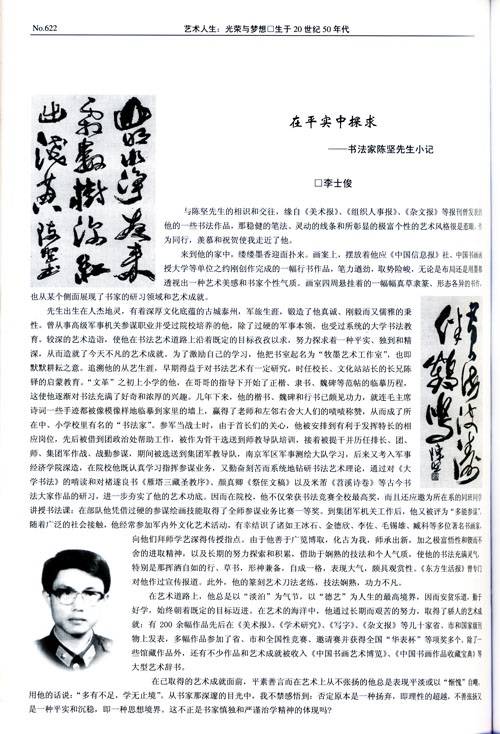 No.622
艺术人生：光荣与梦想□生于20世纪50年代
在平实中探求
——书法家陈坚先生小记
□李士俊
与陈坚先生的相识和交往，缘自《美术报》、《组织人事报》、《杂文报》等报刊曾发表的
他的一些书法作品，那稳健的笔法、灵动的线条和所彰显的极富个性的艺术风格很是惹眼。作
为同行，羡慕和祝贺使我走近了他。
来到他的家中，缕缕墨香迎面扑来。画案上，摆放着他应《中国信息报》社、中国书画函
授大学等单位之约刚创作完成的一幅行书作品，笔力遒劲，取势险峻，无论是布局还是用墨都
透视出一种艺术美感和书家个性气质。画室四周悬挂着的一幅幅真草隶篆、形态各异的书作，
也从某个侧面展现了书家的研习领域和艺术成就。
先生出生在人杰地灵，有着深厚文化底蕴的古城泰州，军旅生涯，锻造了他真诚、刚毅而又儒雅的秉
性。曾从事高级军事机关参谋职业并受过院校培养的他，除了过硬的军事本领，也受过系统的大学书法教
育。较深的艺术造诣，使他在书法艺术道路上沿着既定的目标孜孜以求，努力探求着一种平实、独到和精
深，从而造就了今天不凡的艺术成就。为了激励自己的学习，他把书室起名为“牧墨艺术工作室”，也即
默默耕耘之意。追溯他的从艺生涯，早期得益于对书法艺术有一定研究，时任校长、文化站站长的长兄陈
铎的启蒙教育。“文革”之初上小学的他，在哥哥的指导下开始了正楷、隶书、魏碑等范帖的临摹历程，
这使他逐渐对书法充满了好奇和浓厚的兴趣。几年下来，他的楷书、魏碑和行书已颇见功力，就连毛主席
诗词一些手迹都被像模像样地临摹到家里的墙上，赢得了老师和左邻右舍大人们的啧啧称赞，从而成了所
在中、小学校里有名的“书法家”。参军当战士时，由于首长们的关心，他被安排到有利于发挥特长的相
应岗位，先后被借到团政治处帮助工作，被作为骨干选送到师教导队培训，接着被提干并历任排长、团、
师、集团军作战、战勤参谋，期间被选送到集团军教导队，南京军区军事测绘大队学习，后来又考入军事
经济学院深造，在院校他既认真学习指挥参谋业务，又勤奋刻苦而系统地钻研书法艺术理论，通过对《大
学书法》的啃读和对褚遂良书《雁塔三藏圣教序》、颜真卿《祭侄文稿》以及米芾《苕溪诗卷》等古今书
法大家作品的研习，进一步夯实了他的艺术功底。因而在院校，他不仅荣获书法竞赛全校最高奖，而且还应邀为所在系的同班同学
讲授书法课；在部队他凭借过硬的参谋绘画技能取得了全师参谋业务比赛一等奖。到集团军机关工作后，他又被评为“多能参谋”。
随着广泛的社会接触，他经常参加军内外文化艺术活动，有幸结识了诸如王冰石、金德欣、李佐、毛锡雄、臧科等多位著名书画家，
向他们拜师学艺深得传授指点。由于他善于广览博取，化古为我，师承出新，加之极富悟性和锲而不
舍的进取精神，以及长期的努力探索和积累，借助于娴熟的技法和个人气质，使他的书法充满灵气，
特别是那挥洒自如的行、草书，形神兼备，自成一格，表现大气，颇具观赏性。《东方生活报》曾专门
对他作过宣传报道。此外，他的篆刻艺术刀法老练，技法娴熟，功力不凡。
在艺术道路上，他总是以“淡泊”为气节，以“德艺”为人生的最高境界，因而安贫乐道，勤于
好学，始终朝着既定的目标迈进。在艺术的海洋中，他通过长期而艰苦的努力，取得了骄人的艺术成
就：有200余幅作品先后在《美术报》、《学术研究》、《写字》、《杂文报》等几十家省、市和国家级刊
物上发表，多幅作品参加了省、市和全国性竞赛、邀请赛并获得全国“华表杯”等项奖多个，除了一
些馆藏作品外，还有不少作品和艺术成就被收入《中国书画艺术博览》、《中国书画作品收藏宝典》等
大型艺术辞书。
在已取得的艺术成就面前，平素善言而在艺术上从不张扬的他总是表现平淡或以“惭愧”自嘲，
用他的话说：“多有不足，学无止境”。从书家那深邃的目光中，我不禁感悟到：否定原本是一种扬弃，即理性的超越，不善张扬又
是一种平实和沉稳，即一种思想境界。这不正是书家慎独和严谨治学精神的体现吗？